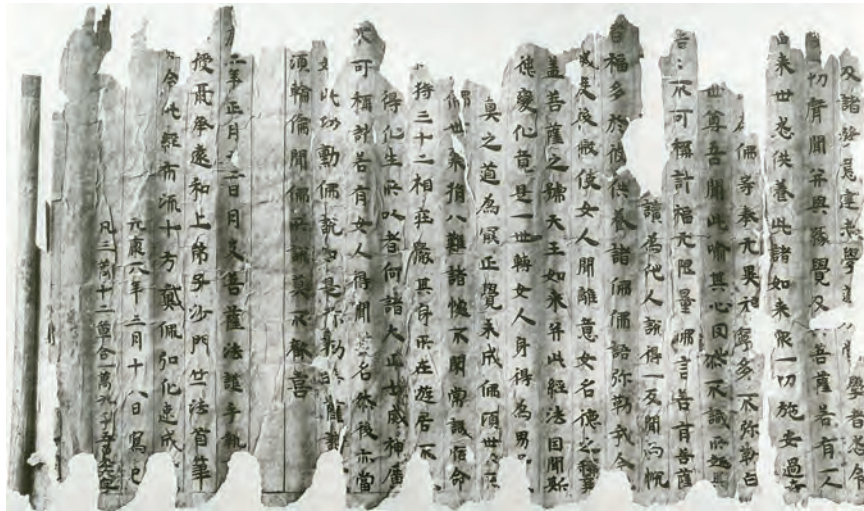 及諸發意建 學 聲者悉令
切聲聞并與緣覺及 菩薩若有一人
來世悉供養此諸如來眾一切施安過
佛等奉无異 多不弥勒白
世尊吾聞此喻其心因然不識所趣
不可稱計福无限量佛言若有菩薩
讀為他人說得一反聞而悅
福多於彼供養諸佛佛語弥勒我今
使女人聞離意女名德之稱
蓋菩薩之號天王如來并此經法因聞斯
德變化音是一世轉女人身得為男
真之道為最正覺未成佛頃世世
佛世 八難諸 不聞當識宿命
持三十二相莊嚴其身所在遊居
得化生所以者何諸大正女威神廣
不可稱計若有女人得聞其名然後亦當
如此功勳佛說如是弥勒菩薩
須輪倫聞佛所說莫不歡喜
六年正月 二日月支菩薩法護手執
授聶承遠和上弟子沙門竺法首筆
令此經布流十方載佩弘化速成
元康六年三月十八日寫已
凡三萬十二章合一萬九千五百九十六字